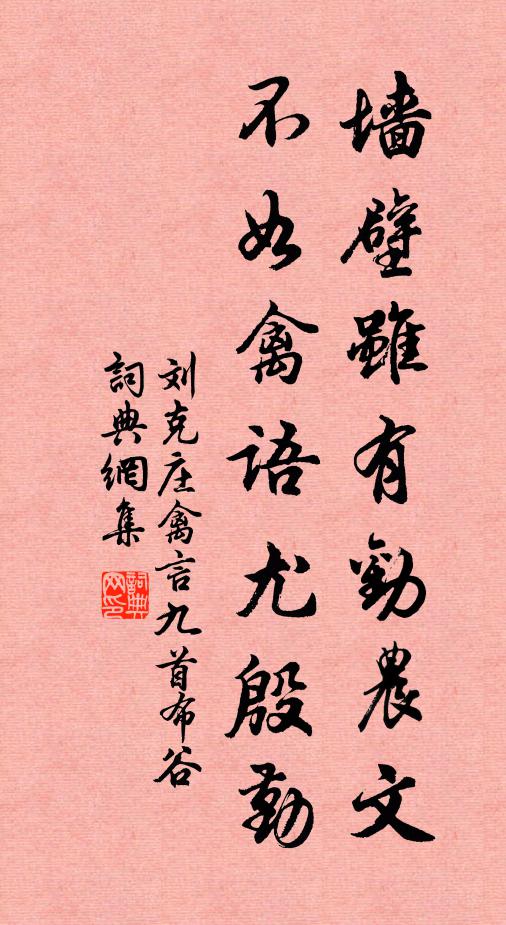 墙壁雖有勸農文
不如禽语尤殷勤
刘克庄禽言九首布谷
詞典網集
詞典
网印